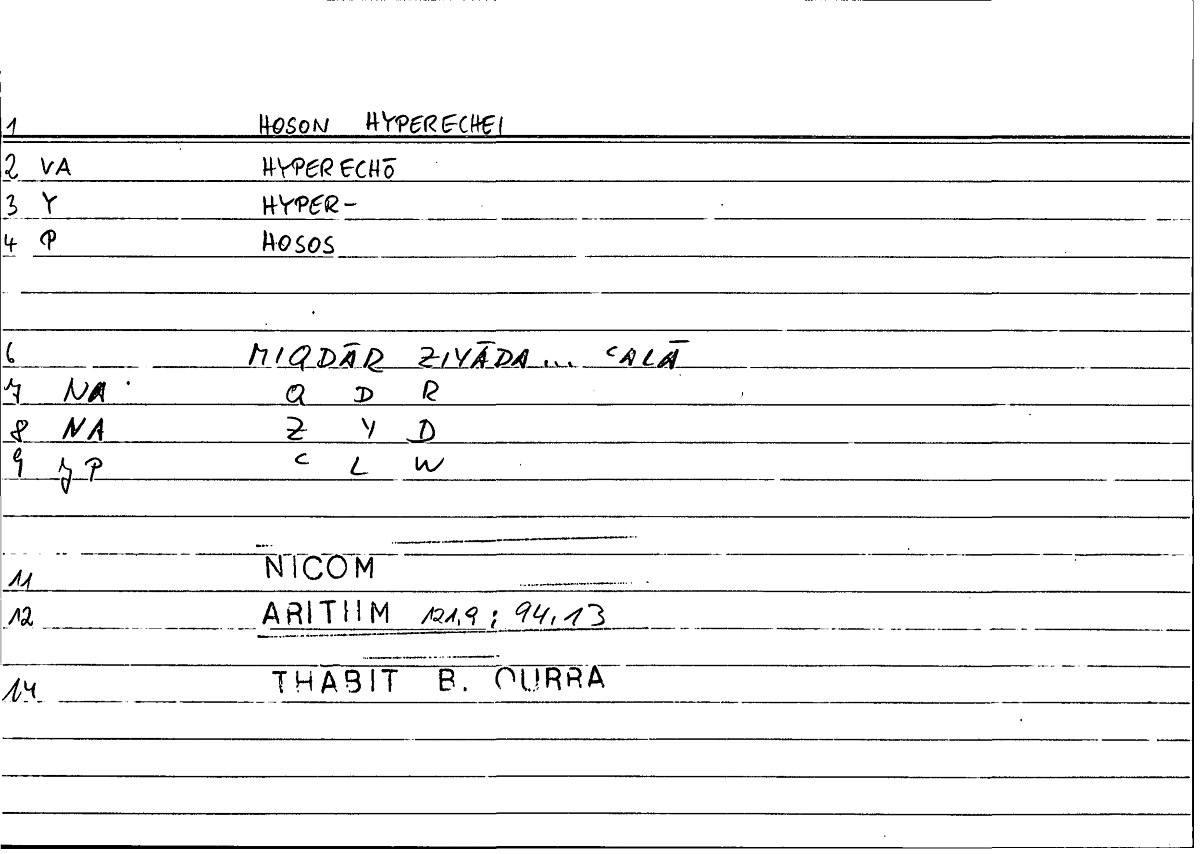 1 HOSON HYPERECHEI
2 VA HYPERECHŌ
3 Y HYPER-
4 P HOSOS
6 MIQDĀR ZIYĀDA... ʿALĀ
7 NA Q D R
8 NA Z Y D
9 JP ʿ L W
11 NICOM
12 ARITHM 121,9 ; 94,13
14 THABIT B. QURRA